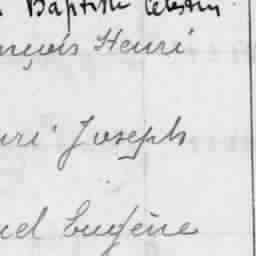 Baptiste Célestin
nçois Henri
nri Joseph
uel Eugène